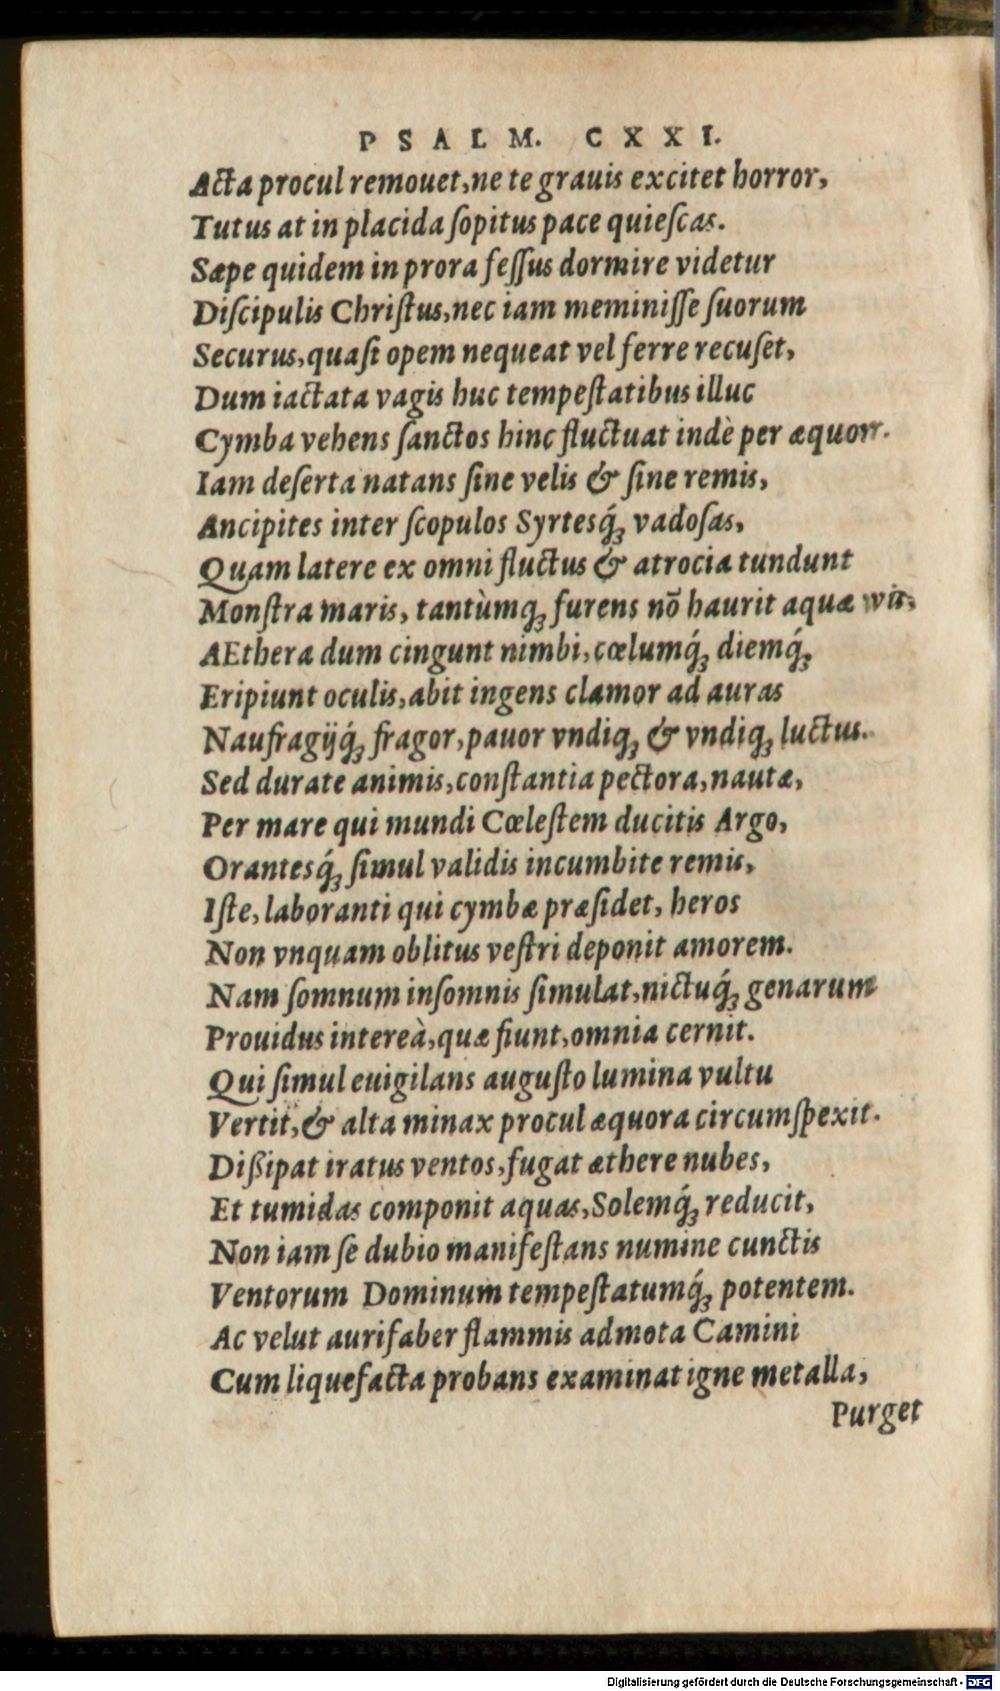 PSALM. CXXI.
Acta procul remouet, ne te grauis excitet horror,
Tutus at in placida ſopitus pace quieſcas.
Sæpe quidem in prora feſſus dormire videtur
Diſcipulis Chriſtus, nec iam meminiſſe ſuorum
Securus, quaſi opem nequeat vel ferre recuſet,
Dum iactata vagis huc tempeſtatibus illuc
Cymba vehens ſanctos hinc fluctuat indè per æquor.
Iam deſerta natans ſine velis & ſine remis,
Ancipites inter ſcopulos Syrtesq́; vadoſas,
Quam latere ex omni fluctus & atrocia tundunt
Monſtra maris, tantùmq; furens nō haurit aquæ vis,
AEthera dum cingunt nimbi, cœlumq́; diemq́;
Eripiunt oculis, abit ingens clamor ad auras
Naufragijq́; fragor, pauor vndiq; & vndiq; luctus.
Sed durate animis, conſtantia pectora, nautæ,
Per mare qui mundi Cœleſtem ducitis Argo,
Orantesq́; ſimul validis incumbite remis,
Iſte, laboranti qui cymbæ præſidet, heros
Non vnquam oblitus veſtri deponit amorem.
Nam ſomnum inſomnis ſimulat, nictuq́; genarum
Prouidus intereà, quæ fiunt, omnia cernit.
Qui ſimul euigilans auguſto lumina vultu
Vertit, & alta minax procul æquora circumſpexit.
Dißipat iratus ventos, fugat æthere nubes,
Et tumidas componit aquas, Solemq́; reducit,
Non iam ſe dubio manifeſtans numine cunctis
Ventorum Dominum tempeſtatumq́; potentem.
Ac velut aurifaber flammis admota Camini
Cum liquefacta probans examinat igne metalla,
Purget
Digitalisierung gefördert durch die Deutsche Forschungsgemeinschaft - DFG